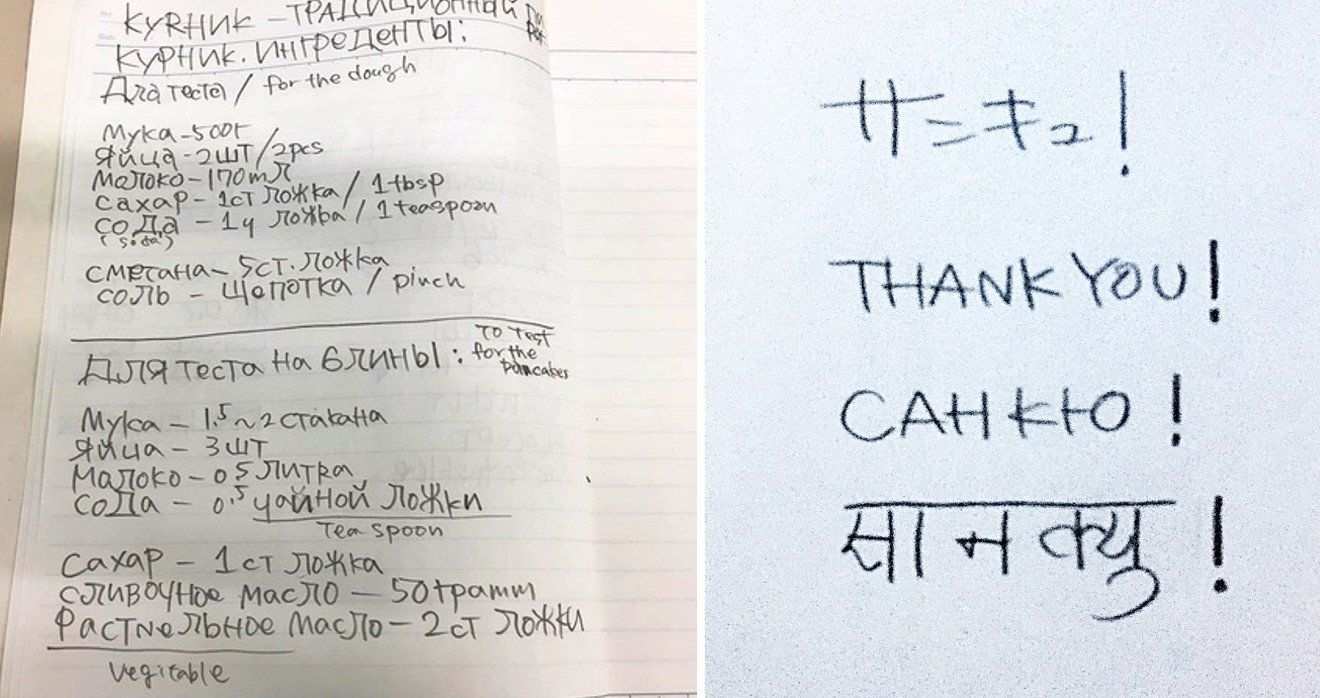 КУRНИК – ТРАДИЦИОННЫЙ
КУРНИК. ИНГРЕДЕНТЫ:
Для теста / for the dough
Мука - 500г
яйца - 2шт / 2pcs
молоко - 170мл
сахар - 1ст ложка / 1tbsp
сода - 1ч ложка / 1teaspoon
(soda)
сметана - 5ст. ложка
соль - щепотка / pinch
Для теста на блины: To Test
for the
pancakes
Мука - 1.5 ~ 2 стакана
яйца - 3 шт
Молоко - 0.5 литRа
сода - 0.5 чайной ложки
Tea spoon
сахар - 1 ст ложка
сливочное масло - 50 грамм
Растnельное масло - 2 ст ложки
Vegitable
サンキュ!
THANK YOU!
САНКЮ!
सानक्यु!